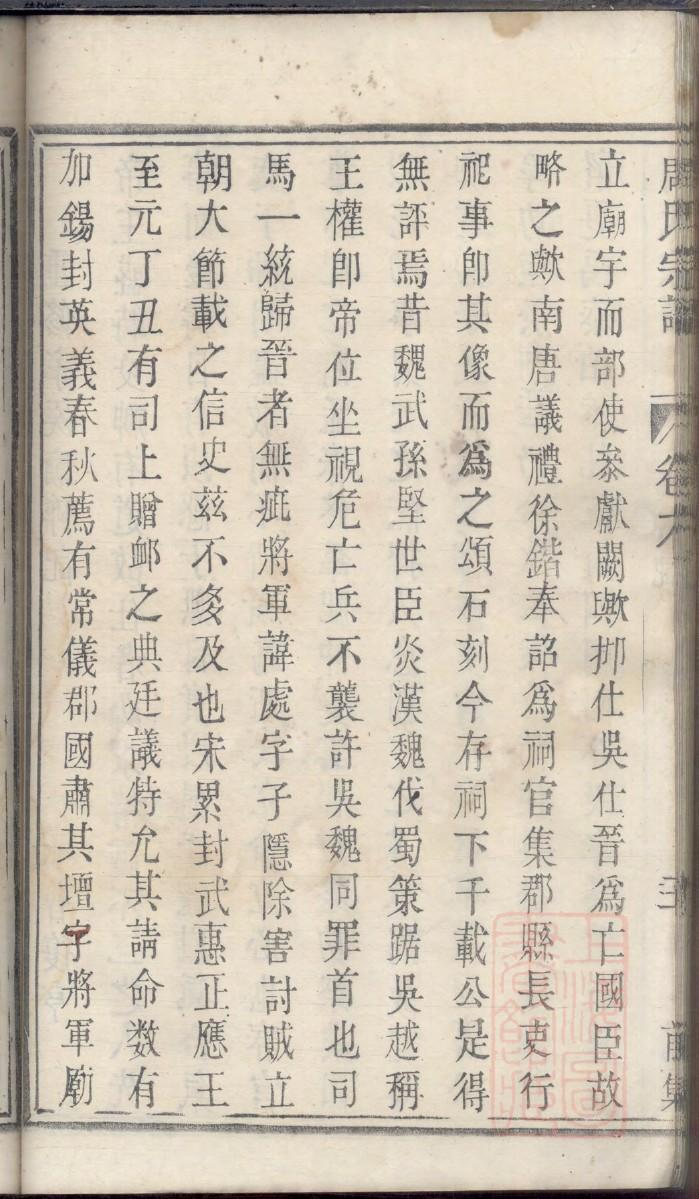 周氏宗譜 卷九 前集
立廟宇而部使叅獻闕歟抑仕吳仕晉爲亡國臣故
略之歟南唐議禮徐鍇奉詔爲祠官集郡縣長吏行
祀事卽其像而爲之頌石刻今存祠下千載公是得
無評焉昔魏武孫堅世臣炎漢魏伐蜀策踞吳越稱
王權卽帝位坐視危亡兵不襲許吳魏同罪首也司
馬一統歸晉者無疵將軍諱處字子隱除害討賊立
朝大節載之信史茲不多及也宋累封武惠正應王
至元丁丑有司上贈卹之典廷議特允其請命数有
加錫封英義春秋薦有常儀郡國肅其壇宇將軍廟